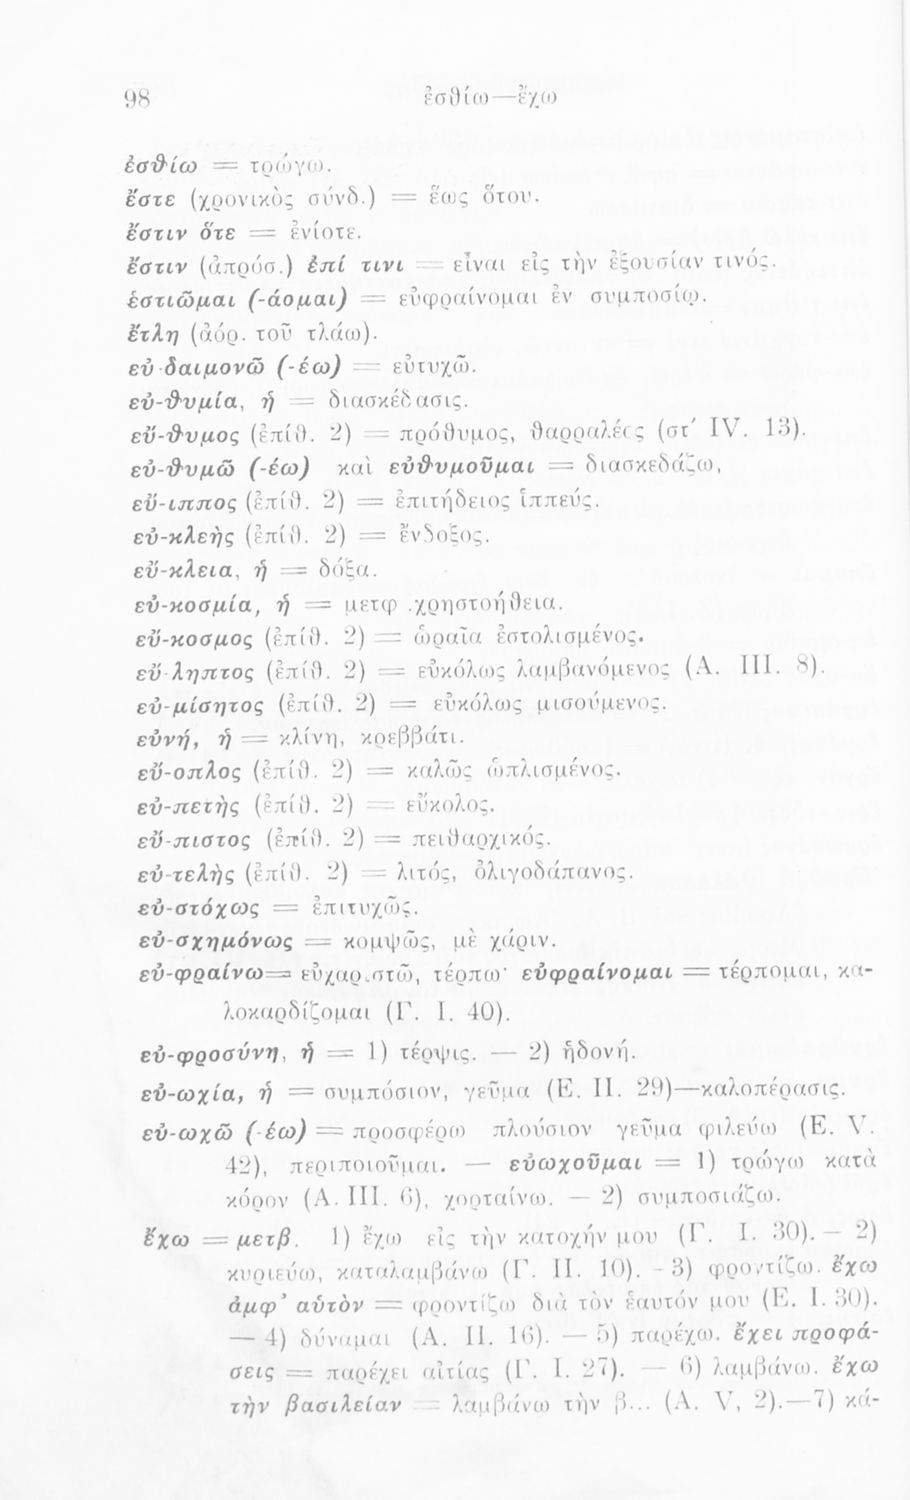 98 ἐσθίω—ἔχω
ἐσθίω = τρώγω.
ἔστε (χρονικὸς σύνδ.) = ἕως ὅτου.
ἔστιν ὅτε = ἐνίοτε.
ἔστιν (ἀπρόσ.) ἐπί τινι = εἶναι εἰς τὴν ἐξουσίαν τινός.
ἑστιῶμαι (-άομαι) = εὐφραίνομαι ἐν συμποσίῳ.
ἔτλη (ἀόρ. τοῦ τλάω).
εὐ-δαιμονῶ (-έω) = εὐτυχῶ.
εὐ-θυμία, ἡ = διασκέδασις.
εὔ-θυμος (ἐπίθ. 2) = πρόθυμος, θαρραλέος (στ' IV. 13).
εὐ-θυμῶ (-έω) καὶ εὐθυμοῦμαι = διασκεδάζω,
εὔ-ιππος (ἐπίθ. 2) = ἐπιτήδειος ἱππεύς.
εὐ-κλεὴς (ἐπίθ. 2) = ἔνδοξος.
εὔ-κλεια, ἡ = δόξα.
εὐ-κοσμία, ἡ = μετφ .χρηστοήθεια.
εὔ-κοσμος (ἐπίθ. 2) = ὡραῖα ἐστολισμένος.
εὔ-ληπτος (ἐπίθ. 2) = εὐκόλως λαμβανόμενος (Α. III. 8).
εὐ-μίσητος (ἐπίθ. 2) = εὐκόλως μισούμενος.
εὐνή, ἡ = κλίνη, κρεββάτι.
εὔ-οπλος (ἐπίθ. 2) = καλῶς ὡπλισμένος.
εὐ-πετὴς (ἐπίθ. 2) = εὔκολος.
εὔ-πιστος (ἐπίθ. 2) = πειθαρχικός.
εὐ-τελὴς (ἐπίθ. 2) = λιτός, ὀλιγοδάπανος.
εὐ-στόχως = ἐπιτυχῶς.
εὐ-σχημόνως = κομψῶς, μὲ χάριν.
εὐ-φραίνω= εὐχαριστῶ, τέρπω· εὐφραίνομαι = τέρπομαι, κα-
λοκαρδίζομαι (Γ. I. 40).
εὐ-φροσύνη, ἡ = 1) τέρψις. — 2) ἡδονή.
εὐ-ωχία, ἡ = συμπόσιον, γεῦμα (Ε. II. 29)—καλοπέρασις.
εὐ-ωχῶ (-έω) = προσφέρω πλούσιον γεῦμα φιλεύω (Ε. V.
42), περιποιοῦμαι. — εὐωχοῦμαι = 1) τρώγω κατὰ
κόρον (Α. III. 6), χορταίνω. — 2) συμποσιάζω.
ἔχω = μετβ. 1) ἔχω εἰς τὴν κατοχήν μου (Γ. I. 30). — 2)
κυριεύω, καταλαμβάνω (Γ. II. 10). - 3) φροντίζω. ἔχω
ἀμφ' αὑτὸν = φροντίζω διὰ τὸν ἑαυτόν μου (Ε. I. 30).
— 4) δύναμαι (Α. II. 16). — 5) παρέχω. ἔχει προφά-
σεις = παρέχει αἰτίας (Γ. I. 27). — 6) λαμβάνω. ἔχω
τὴν βασιλείαν = λαμβάνω τὴν β... (Α. V, 2).—7) κά-